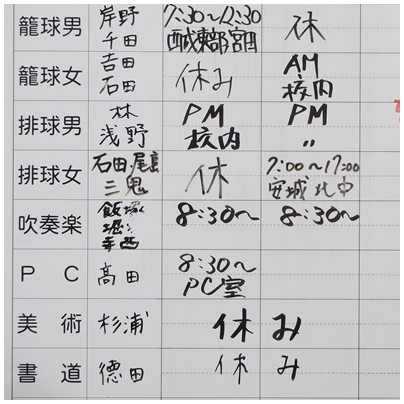 籠球男 岸野 7:30〜12:30 休
千田
籠球女 吉田 休み AM
石田 校内
排球男 林 PM PM
浅野 校内 〃
排球女 石田・尾島 休 7:00〜17:00
三鬼 安城北中
吹奏楽 飯塚 8:30〜 8:30〜
堀
寺西
PC 髙田 8:30〜
PC室
美術 杉浦 休み
書道 德田 休み